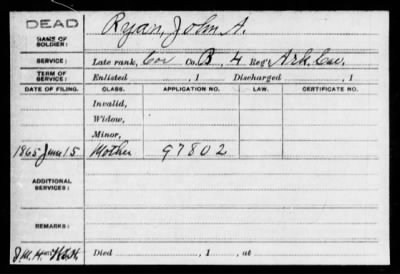 DEAD
Ryan, John A.
NAME OF SOLDIER:
SERVICE: Late rank, Cor Co. B, 4 Reg't Ark. Cav.
TERM OF SERVICE: Enlisted , 1 Discharged , 1
DATE OF FILING. CLASS. APPLICATION NO. LAW. CERTIFICATE NO.
Invalid,
Widow,
Minor,
1865 June 15 Mother 97802
ADDITIONAL SERVICES:
REMARKS:
Died , 1 , at